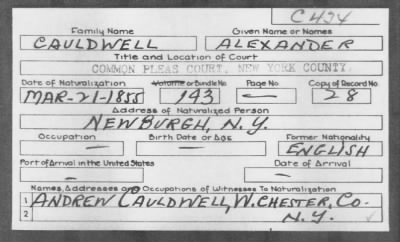 C 434
Family Name Given Name or Names
CAULDWELL ALEXANDER
Title and Location of Court
COMMON PLEAS COURT, NEW YORK COUNTY
Date of Naturalization Volume or Bundle No. Page No. Copy of Record No.
MAR-21-1855 193 — 28
Address of Naturalized Person
NEWBURGH, N.Y.
Occupation Birth Date or Age Former Nationality
— — ENGLISH
Port of Arrival in the United States Date of Arrival
— —
Names, Addresses and Occupations of Witnesses To Naturalization
1 ANDREW CAULDWELL, W. CHESTER, CO.
2 N.Y.